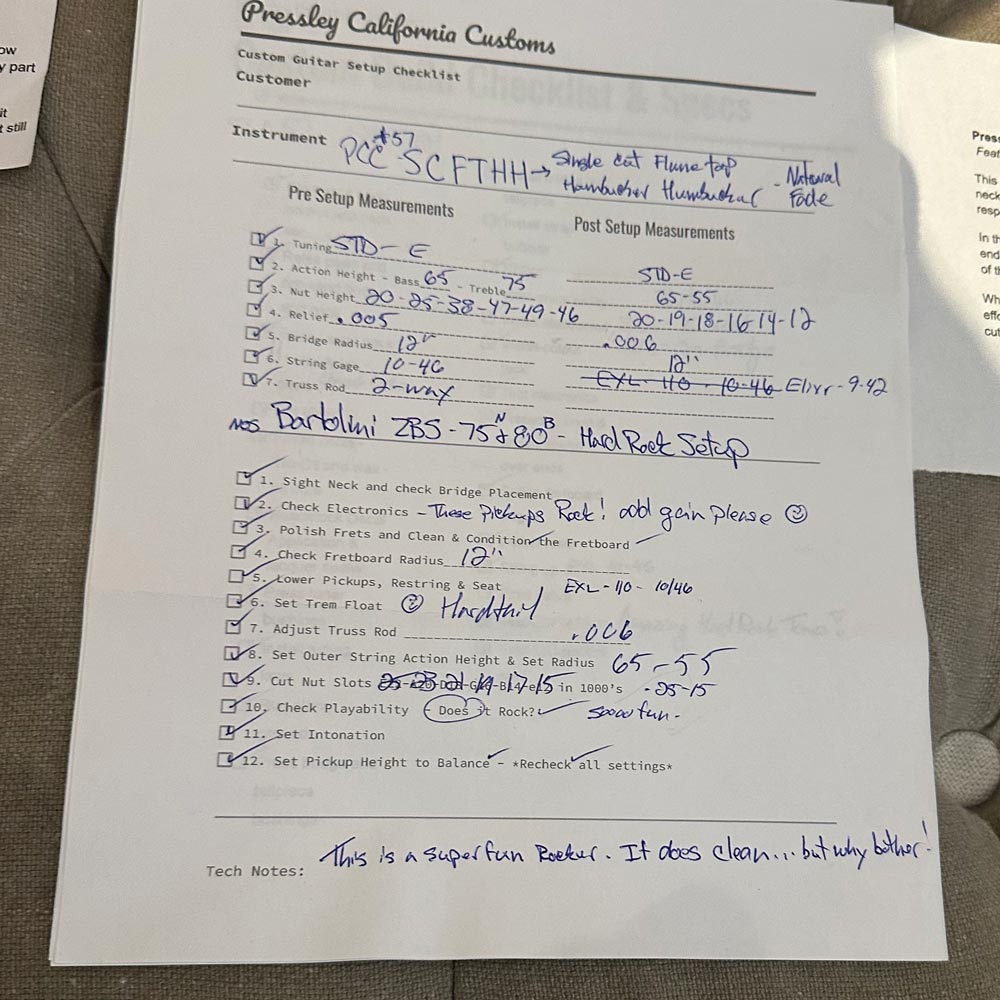 Pressley California Customs
Custom Guitar Setup Checklist
Customer
Instrument PCC #57 SCFTHH → Single Cut Flame top - Natural
Humbucker Humbucker Fade
Pre Setup Measurements Post Setup Measurements
1. Tuning STD - E STD-E
2. Action Height - Bass 65 - Treble 75 65-55
3. Nut Height 20-25-38-47-49-46 20-19-18-16-14-12
4. Relief .005 .006
5. Bridge Radius 12" 12"
6. String Gage 10-46 EXL-110-10-46 Elixr-9-42
7. Truss Rod 2-way
NOS Bartolini ZBS-75 N & 80 B - Hard Rock Setup
1. Sight Neck and check Bridge Placement
2. Check Electronics - These Pickups Rock! add gain please ☺
3. Polish Frets and Clean & Condition the Fretboard
4. Check Fretboard Radius 12"
5. Lower Pickups, Restring & Seat EXL-110-10/46
6. Set Trem Float ☺ Hardtail
7. Adjust Truss Rod .006
8. Set Outer String Action Height & Set Radius 65-55
9. Cut Nut Slots 25-23-21-19-17-15 in 1000's - 25-15
10. Check Playability - Does it Rock? Soooo fun -
11. Set Intonation
12. Set Pickup Height to Balance - *Recheck all settings*
Tech Notes: This is a super fun Rocker. It does clean... but why bother!
ow
y part
it
t still
Press
Feat
This
neck
resp
In th
end
of th
Wh
effo
cut